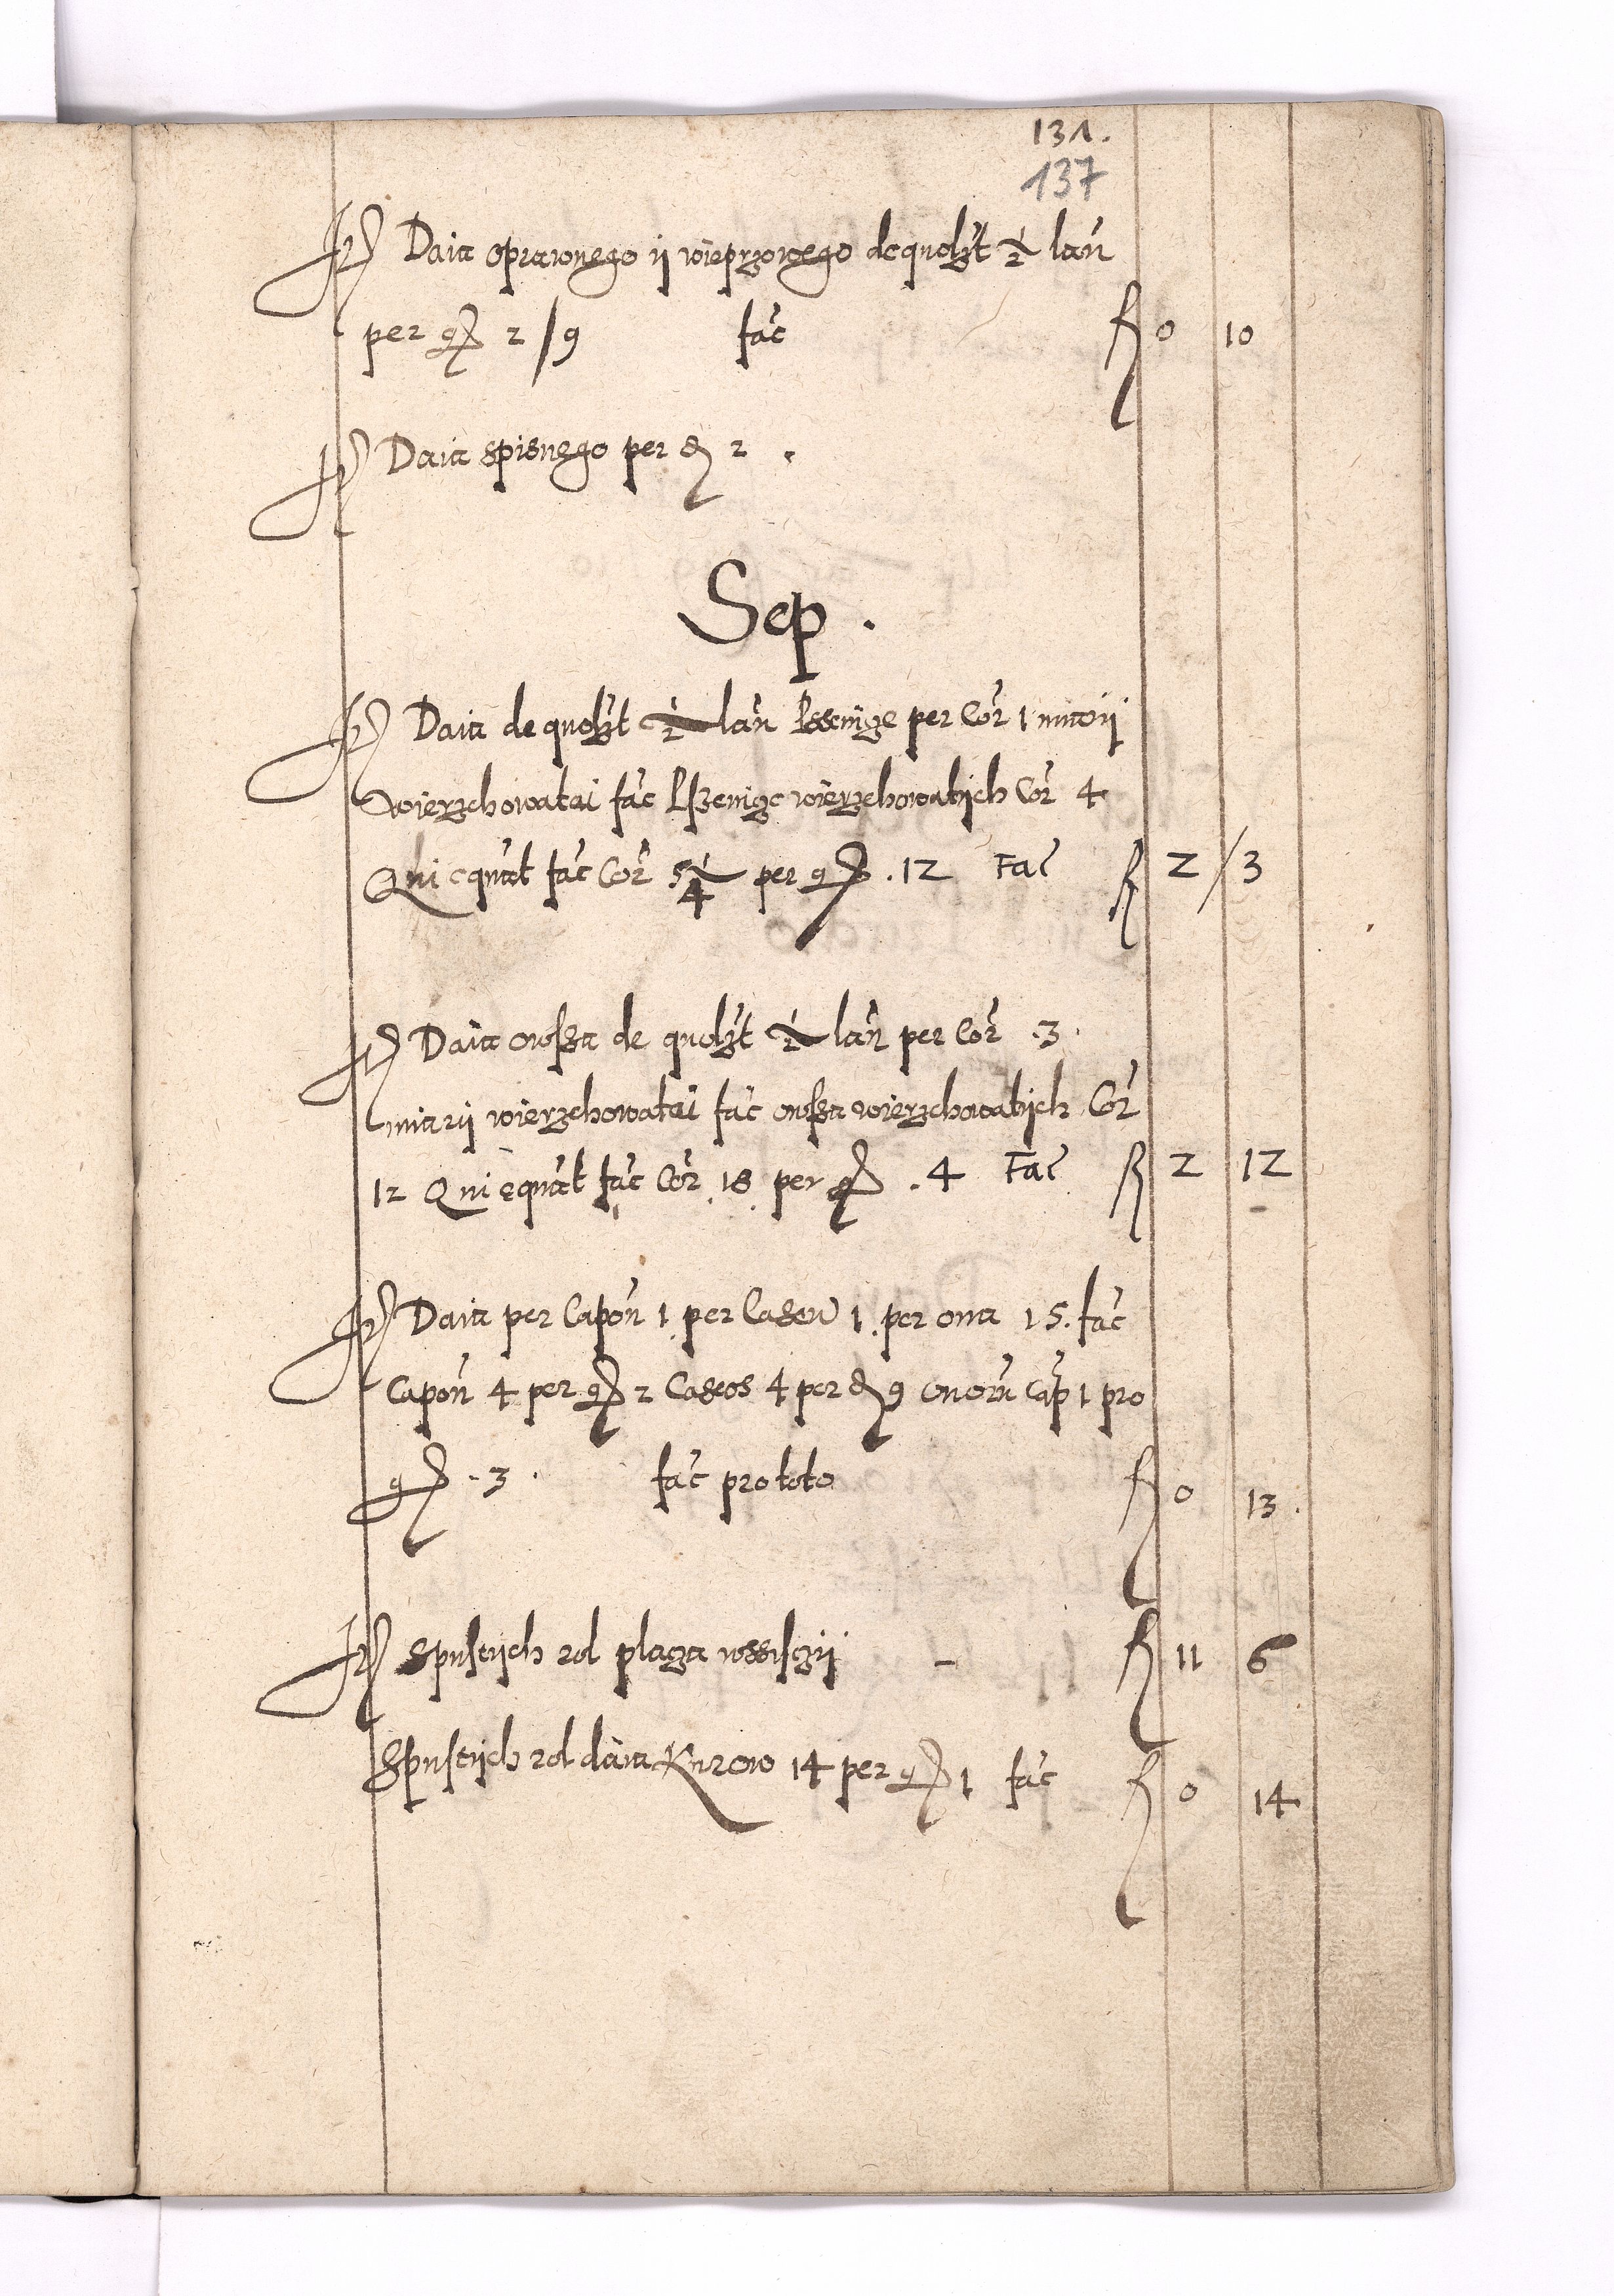 131.
137
It Daia oprawnego ij wieprzowego de quolzt ½ lan
per gr 2/9 fac fl 0 10
It Daia spisnego per d 2.
Sep.
It Daia de quolzt ½ lan pssenize per Cor 1 miarij
wierzchowatai fac Pszenize wierzchowatijch Cor 4
Qui equat fac Cor 5¼ per gr. 12 Fac fl 2/3
It Daia owssa de quolzt ½ lan per Cor .3.
miarij wierzchowatai fac owssa wierzchowatijch Cor
12 Qui equat fac Cor 18 per gr. 4 Fac fl 2 12
It Daia per Capon 1. per Caseu 1. per oua 15. fac
Capon 4 per gr 2 Caseos 4 per d 9 ouoru cap 1 pro
gr .3. fac pro toto fl 0 13.
It Spustijch rol placza wssisczij - fl 11 6
Spustijch rol daia Kurow 14 per gr 1 fac fl 0 14